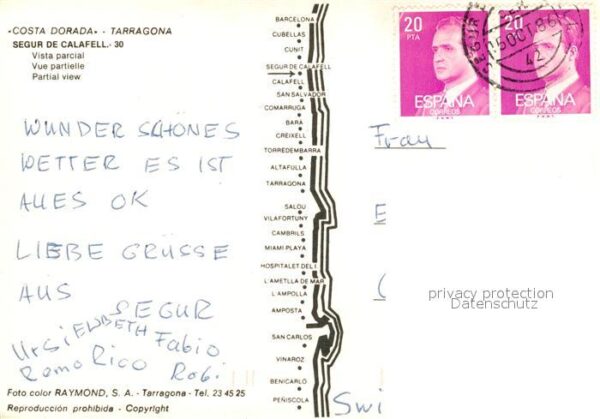 «COSTA DORADA» - TARRAGONA
SEGUR DE CALAFELL.- 30
Vista parcial
Vue partielle
Partial view
WUNDER SCHÖNES
WETTER ES IST
ALLES OK
LIEBE GRÜSSE
AUS
SEGUR
Ursi ELSBETH Fabio
Remo Rico Robi
Foto color RAYMOND, S. A. - Tarragona - Tel. 23 45 25
Reproducción prohibida - Copyright
BARCELONA
CUBELLAS
CUNIT
SEGUR DE CALAFELL
CALAFELL
SAN SALVADOR
COMARRUGA
BARA
CREIXELL
TORREDEMBARRA
ALTAFULLA
TARRAGONA
SALOU
VILAFORTUNY
CAMBRILS
MIAMI PLAYA
HOSPITALET DEL I.
L'AMETLLA DE MAR
L'AMPOLLA
AMPOSTA
SAN CARLOS
VINAROZ
BENICARLO
PEÑISCOLA
20 PTA
ESPAÑA
CORREOS
20
ESPAÑA
CORREOS
SEGUR
05 OCT. 86
42
Frau
E
Swi
privacy protection
Datenschutz